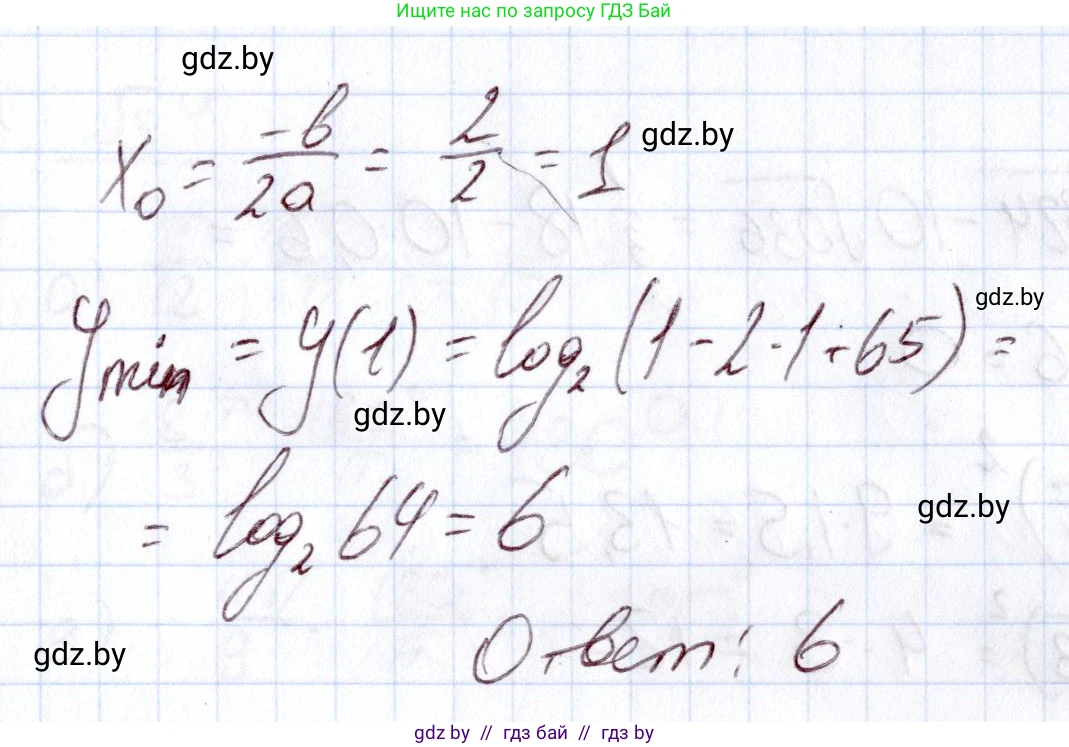 Ищите нас по запросу ГДЗ Бай
gdz.by
x₀ = -b/2a = 2/2 = 1 gdz.by
gdz.by
y min = y(1) = log₂(1-2·1+65) =
gdz.by
= log₂64 = 6
gdz.by
Ответ: 6
gdz.by
gdz.by // гдз бай // gdz.by